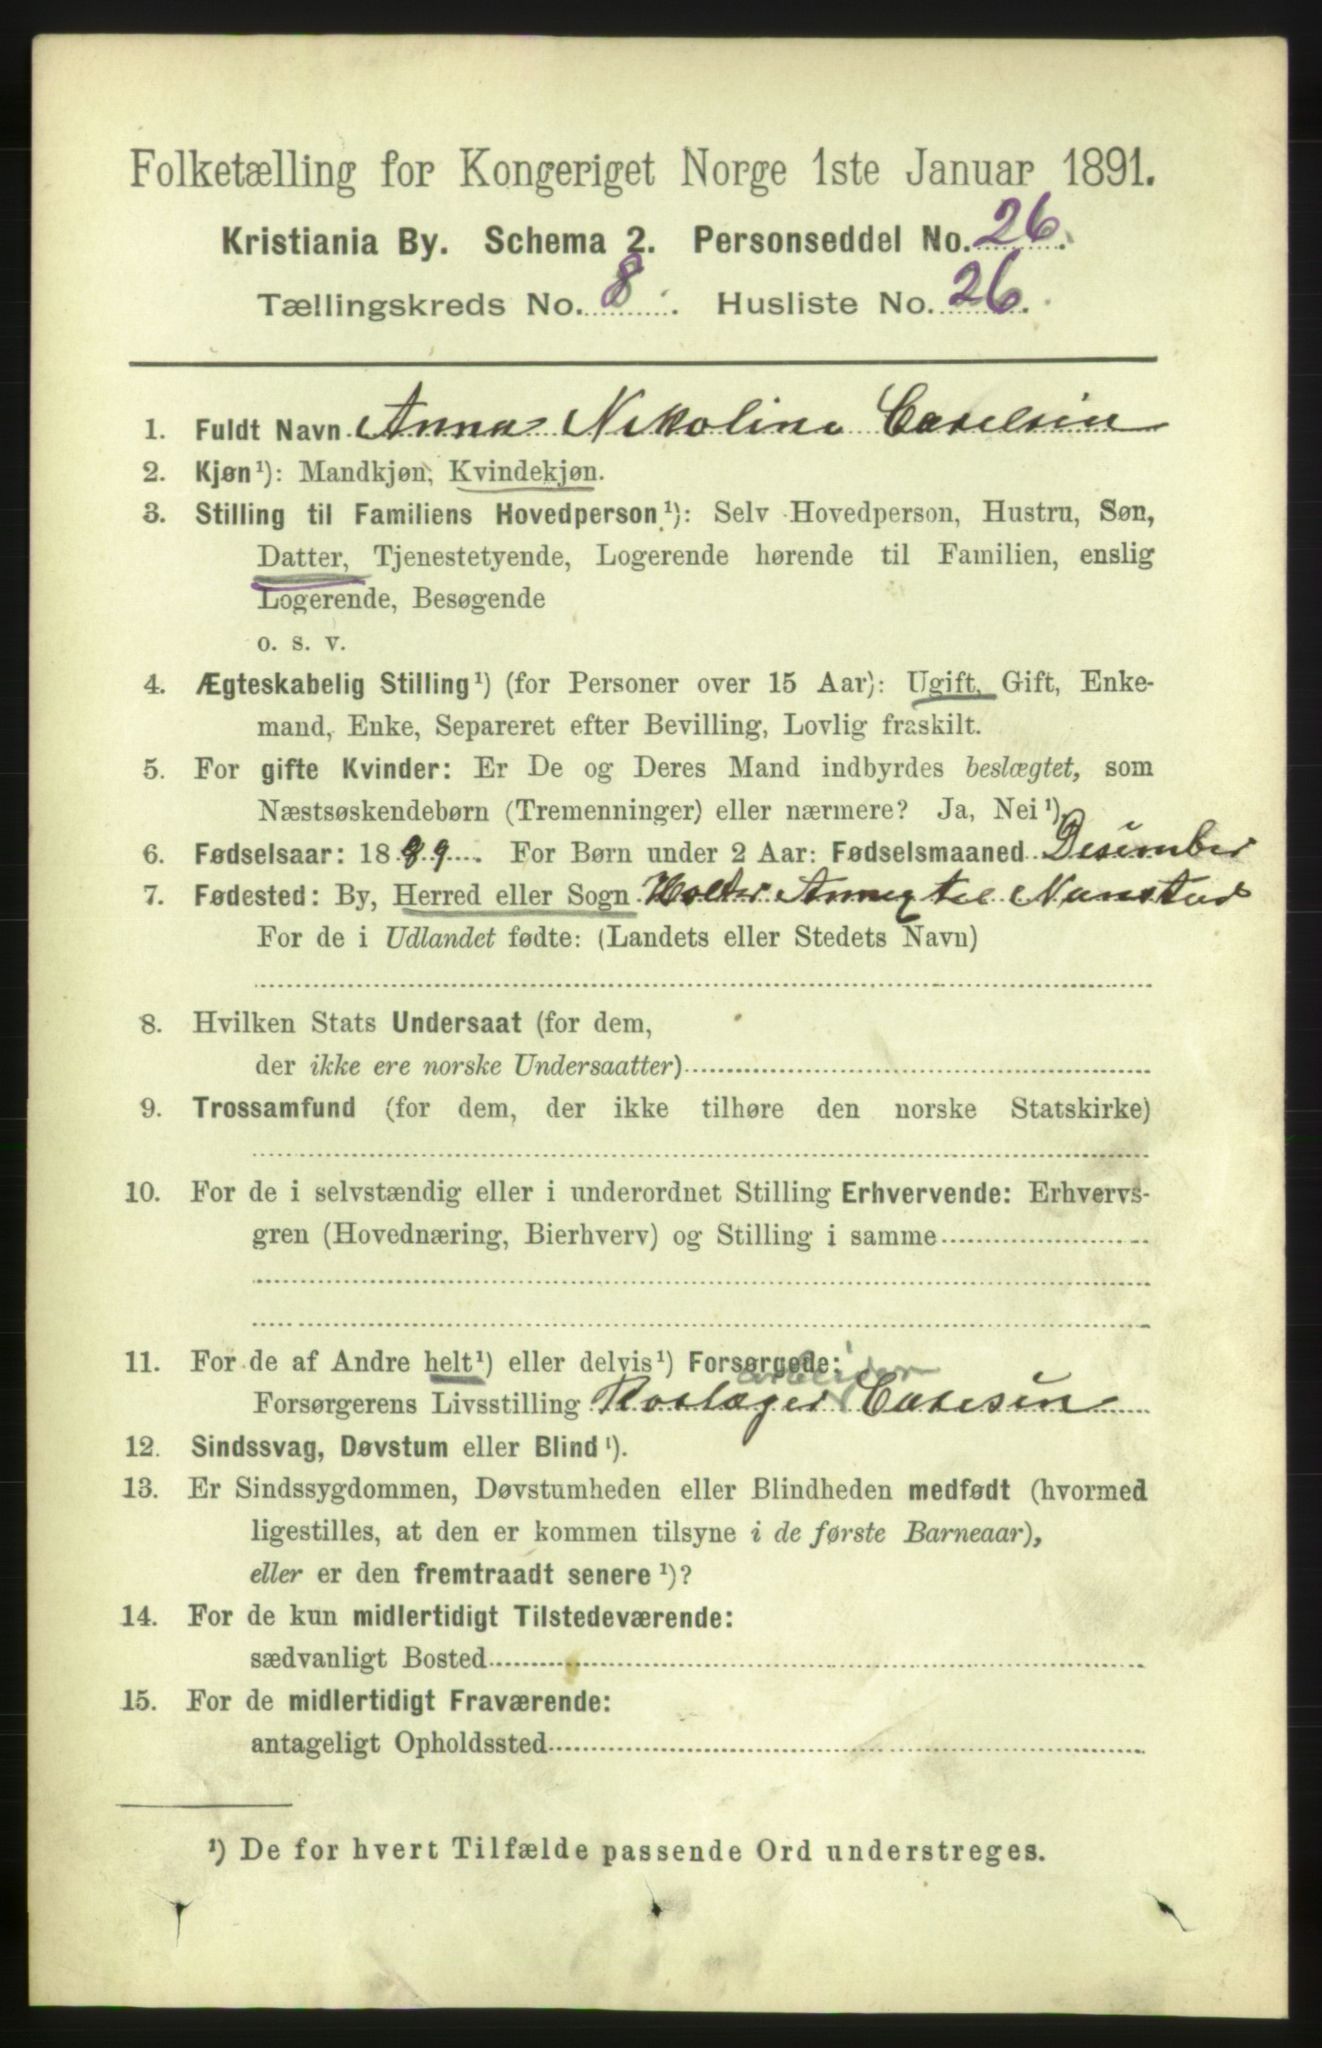 Folketælling for Kongeriget Norge 1ste Januar 1891.
Kristiania By. Schema 2. Personseddel No. 26.
Tællingskreds No. 8. Husliste No. 26.
1. Fuldt Navn Anna Nikoline Carelsen
2. Kjøn¹): Mandkjøn, Kvindekjøn.
3. Stilling til Familiens Hovedperson¹): Selv Hovedperson, Hustru, Søn,
Datter, Tjenestetyende, Logerende hørende til Familien, enslig
Logerende, Besøgende
o. s. v.
4. Ægteskabelig Stilling¹) (for Personer over 15 Aar): Ugift, Gift, Enke-
mand, Enke, Separeret efter Bevilling, Lovlig fraskilt.
5. For gifte Kvinder: Er De og Deres Mand indbyrdes beslægtet, som
Næstsøskendebørn (Tremenninger) eller nærmere? Ja, Nei¹).
6. Fødselsaar: 1889. For Børn under 2 Aar: Fødselsmaaned Desember
7. Fødested: By, Herred eller Sogn Holter Annex til Nanstad
For de i Udlandet fødte: (Landets eller Stedets Navn)
8. Hvilken Stats Undersaat (for dem,
der ikke ere norske Undersaatter)
9. Trossamfund (for dem, der ikke tilhøre den norske Statskirke)
10. For de i selvstændig eller i underordnet Stilling Erhvervende: Erhvervs-
gren (Hovednæring, Bierhverv) og Stilling i samme
11. For de af Andre helt¹) eller delvis¹) Forsørgede:
arbeider
Forsørgerens Livsstilling Carlsen
12. Sindssvag, Døvstum eller Blind¹).
13. Er Sindssygdommen, Døvstumheden eller Blindheden medfødt (hvormed
ligestilles, at den er kommen tilsyne i de første Barneaar),
eller er den fremtraadt senere¹)?
14. For de kun midlertidigt Tilstedeværende:
sædvanligt Bosted
15. For de midlertidigt Fraværende:
antageligt Opholdssted
¹) De for hvert Tilfælde passende Ord understreges.